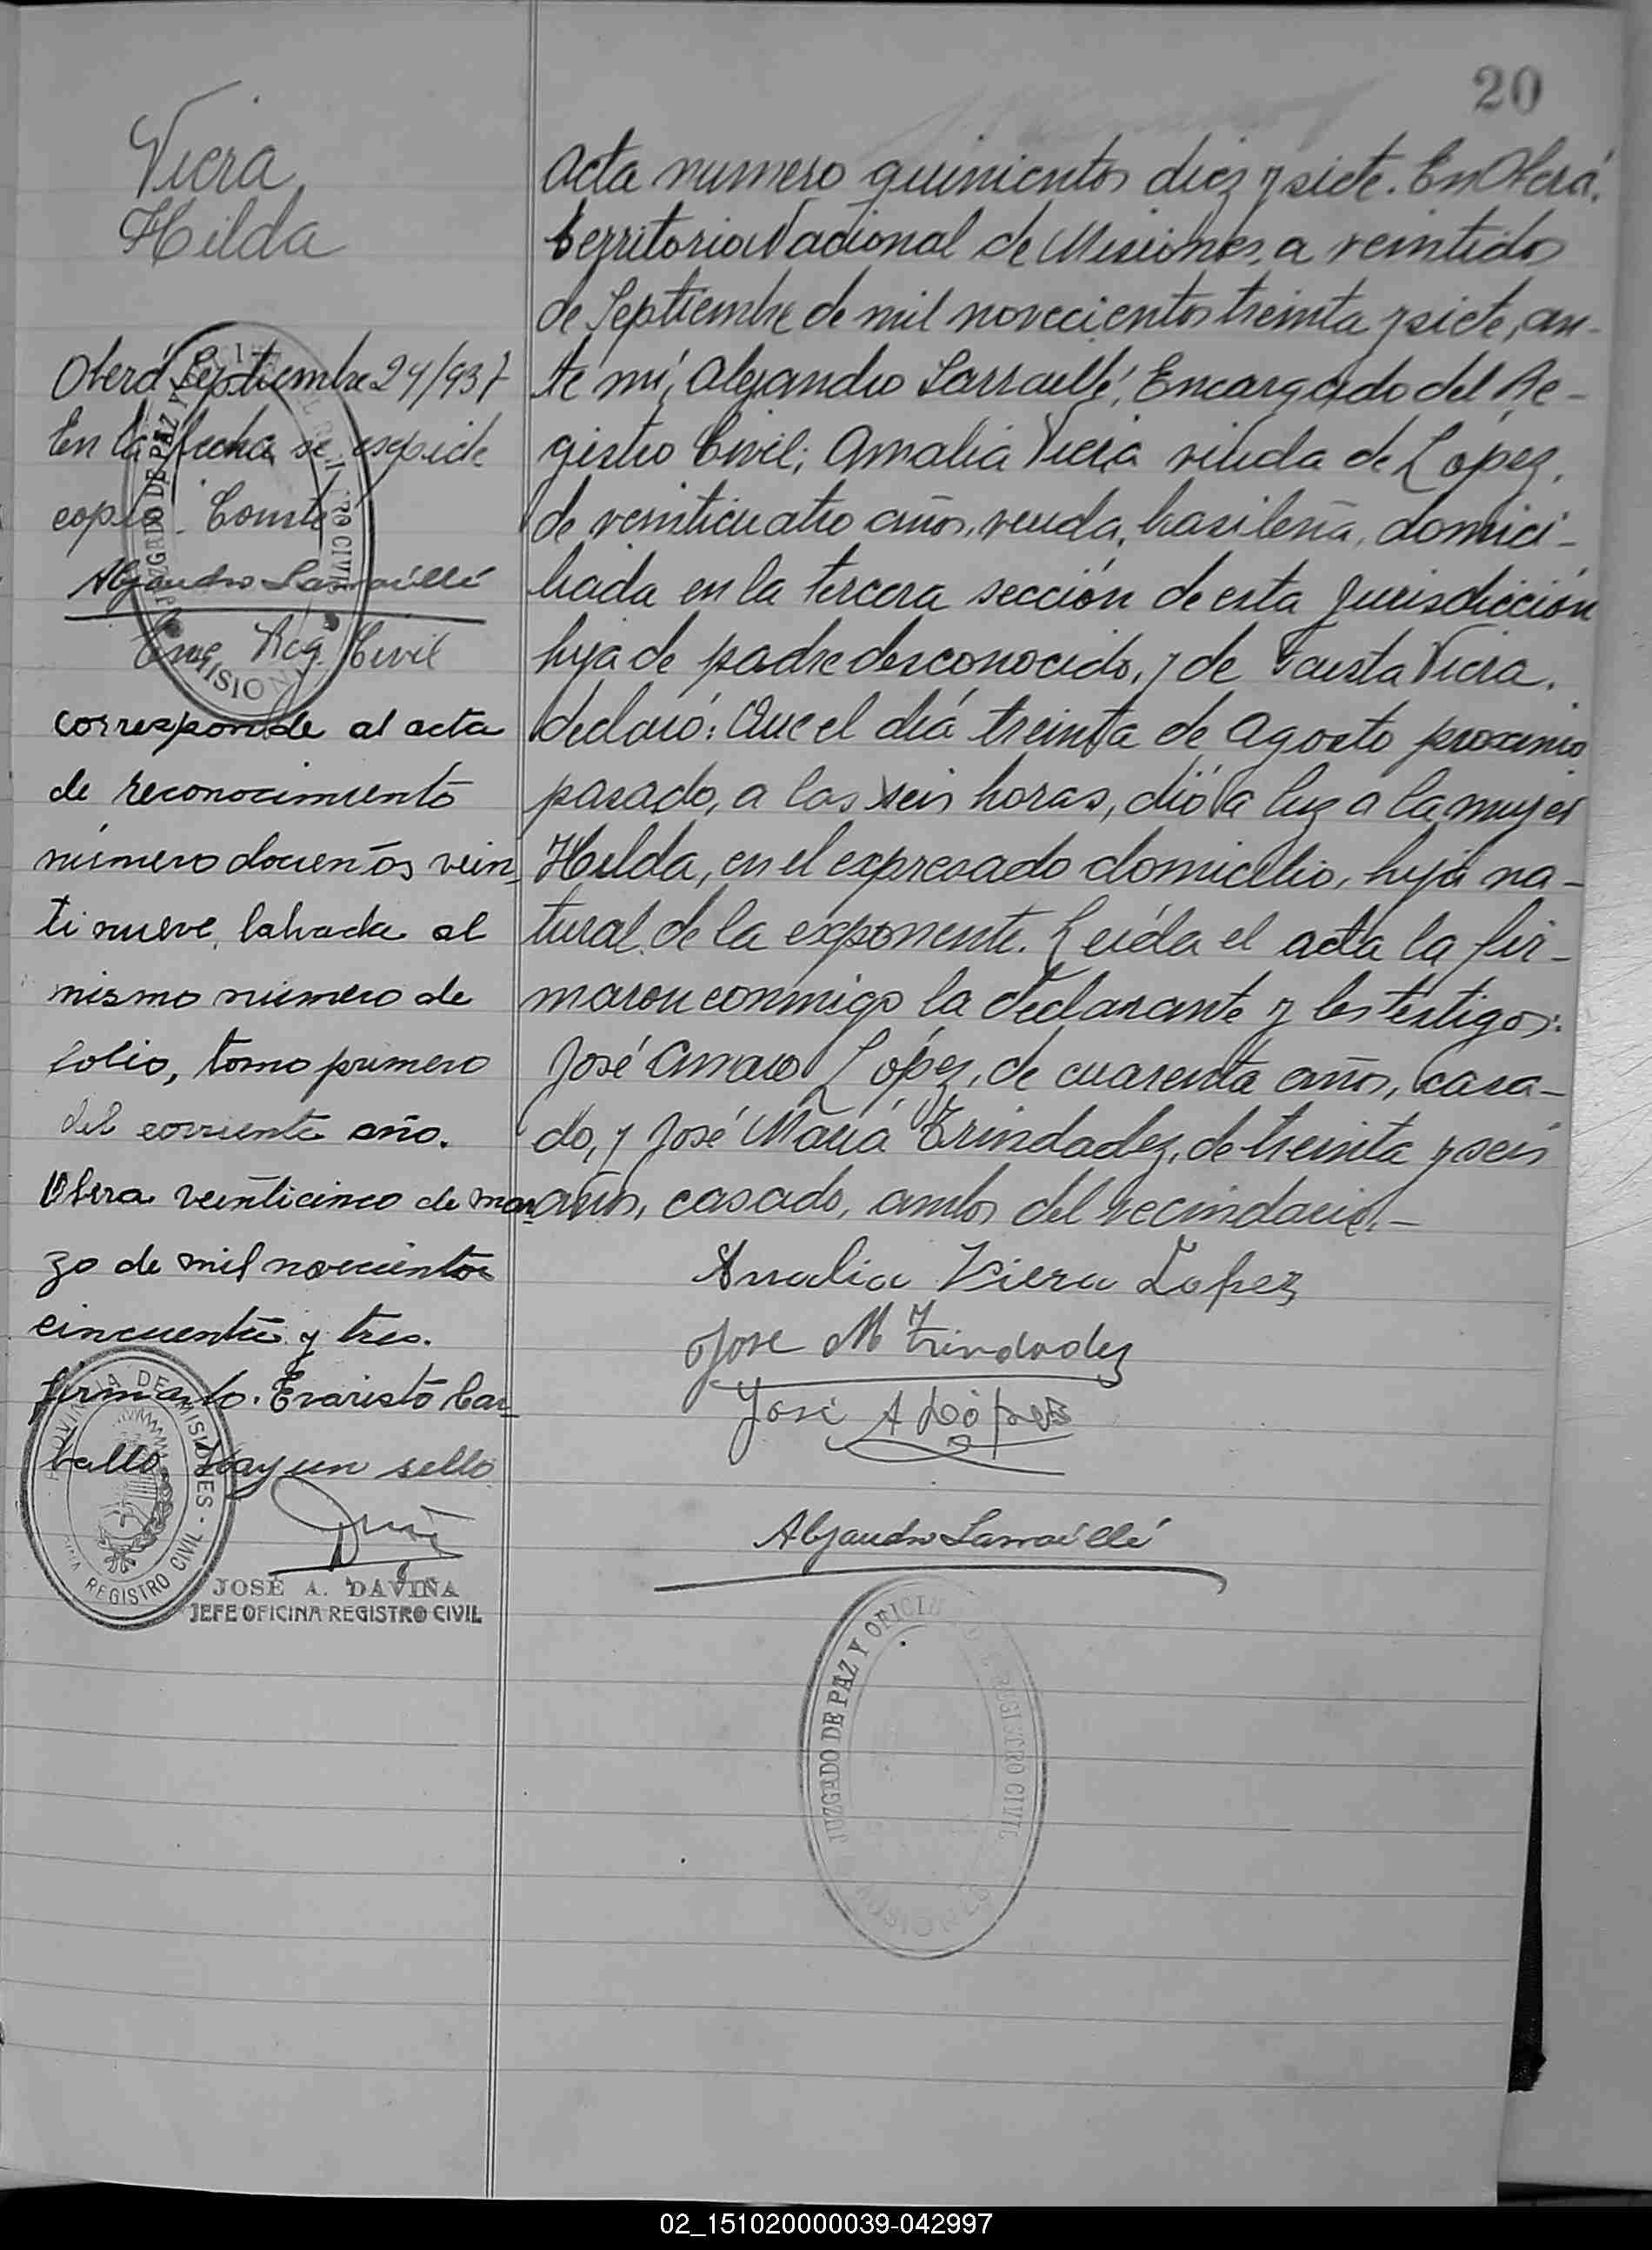 20
Viera
Hilda
Oberá Septiembre 24/937
En la fecha se expide
copia. Conste
Alejandro Larraillé
Enc. Reg. Civil
corresponde al acta
de reconocimiento
número docientos vein
ti nueve, labrada al
mismo número de
folio, tomo primero
del corriente año.
Obera veinticinco de mar
zo de mil novecientos
cincuenta y tres.
firmado. Evaristo Car
ballo Hay un sello
PROVINCIA DE MISIONES - REGISTRO CIVIL
JOSÉ A. DAVIÑA
JEFE OFICINA REGISTRO CIVIL
Acta numero quinientos diez y siete. En Oberá.
Territorio Nacional de Misiones, a veintidos
de Septiembre de mil novecientos treinta y siete, an-
te mí, Alejandro Larraillé, Encargado del Re-
gistro Civil; Amalia Viera viuda de López,
de veinticuatro años, viuda, brasileña, domici-
liada en la tercera sección de esta Jurisdicción
hija de padre desconocido, y de Fausta Viera.
declaró: Que el día treinta de Agosto proximo
pasado, a las seis horas, dió a luz a la mujer
Hilda, en el expresado domicilio, hija na-
tural de la exponente. Leída el acta la fir-
maron conmigo la declarante y los testigos:
José Amaro López, de cuarenta años, casa-
do, y José María Trindadez, de treinta y seis
años, casado, ambos del vecindario.-
Amalia Viera Lopez
Jose M Trindadez
José A López
Alejandro Larraillé
JUZGADO DE PAZ Y OFICINA REGISTRO CIVIL
MISIONES
02_151020000039-042997